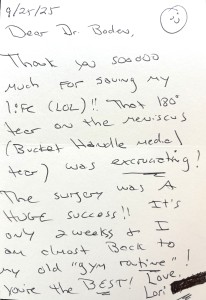 9/25/25
Dear Dr. Boden,
Thank you sooooo
much for saving my
life (LOL)!! That 180°
tear on the meniscus
(Bucket Handle medial
tear) was excruciating!
The surgery was A
HUGE success!! It's
only 2 weeks & I
am almost Back to
my old "gym routine"!
You're the BEST! Love,
Lori